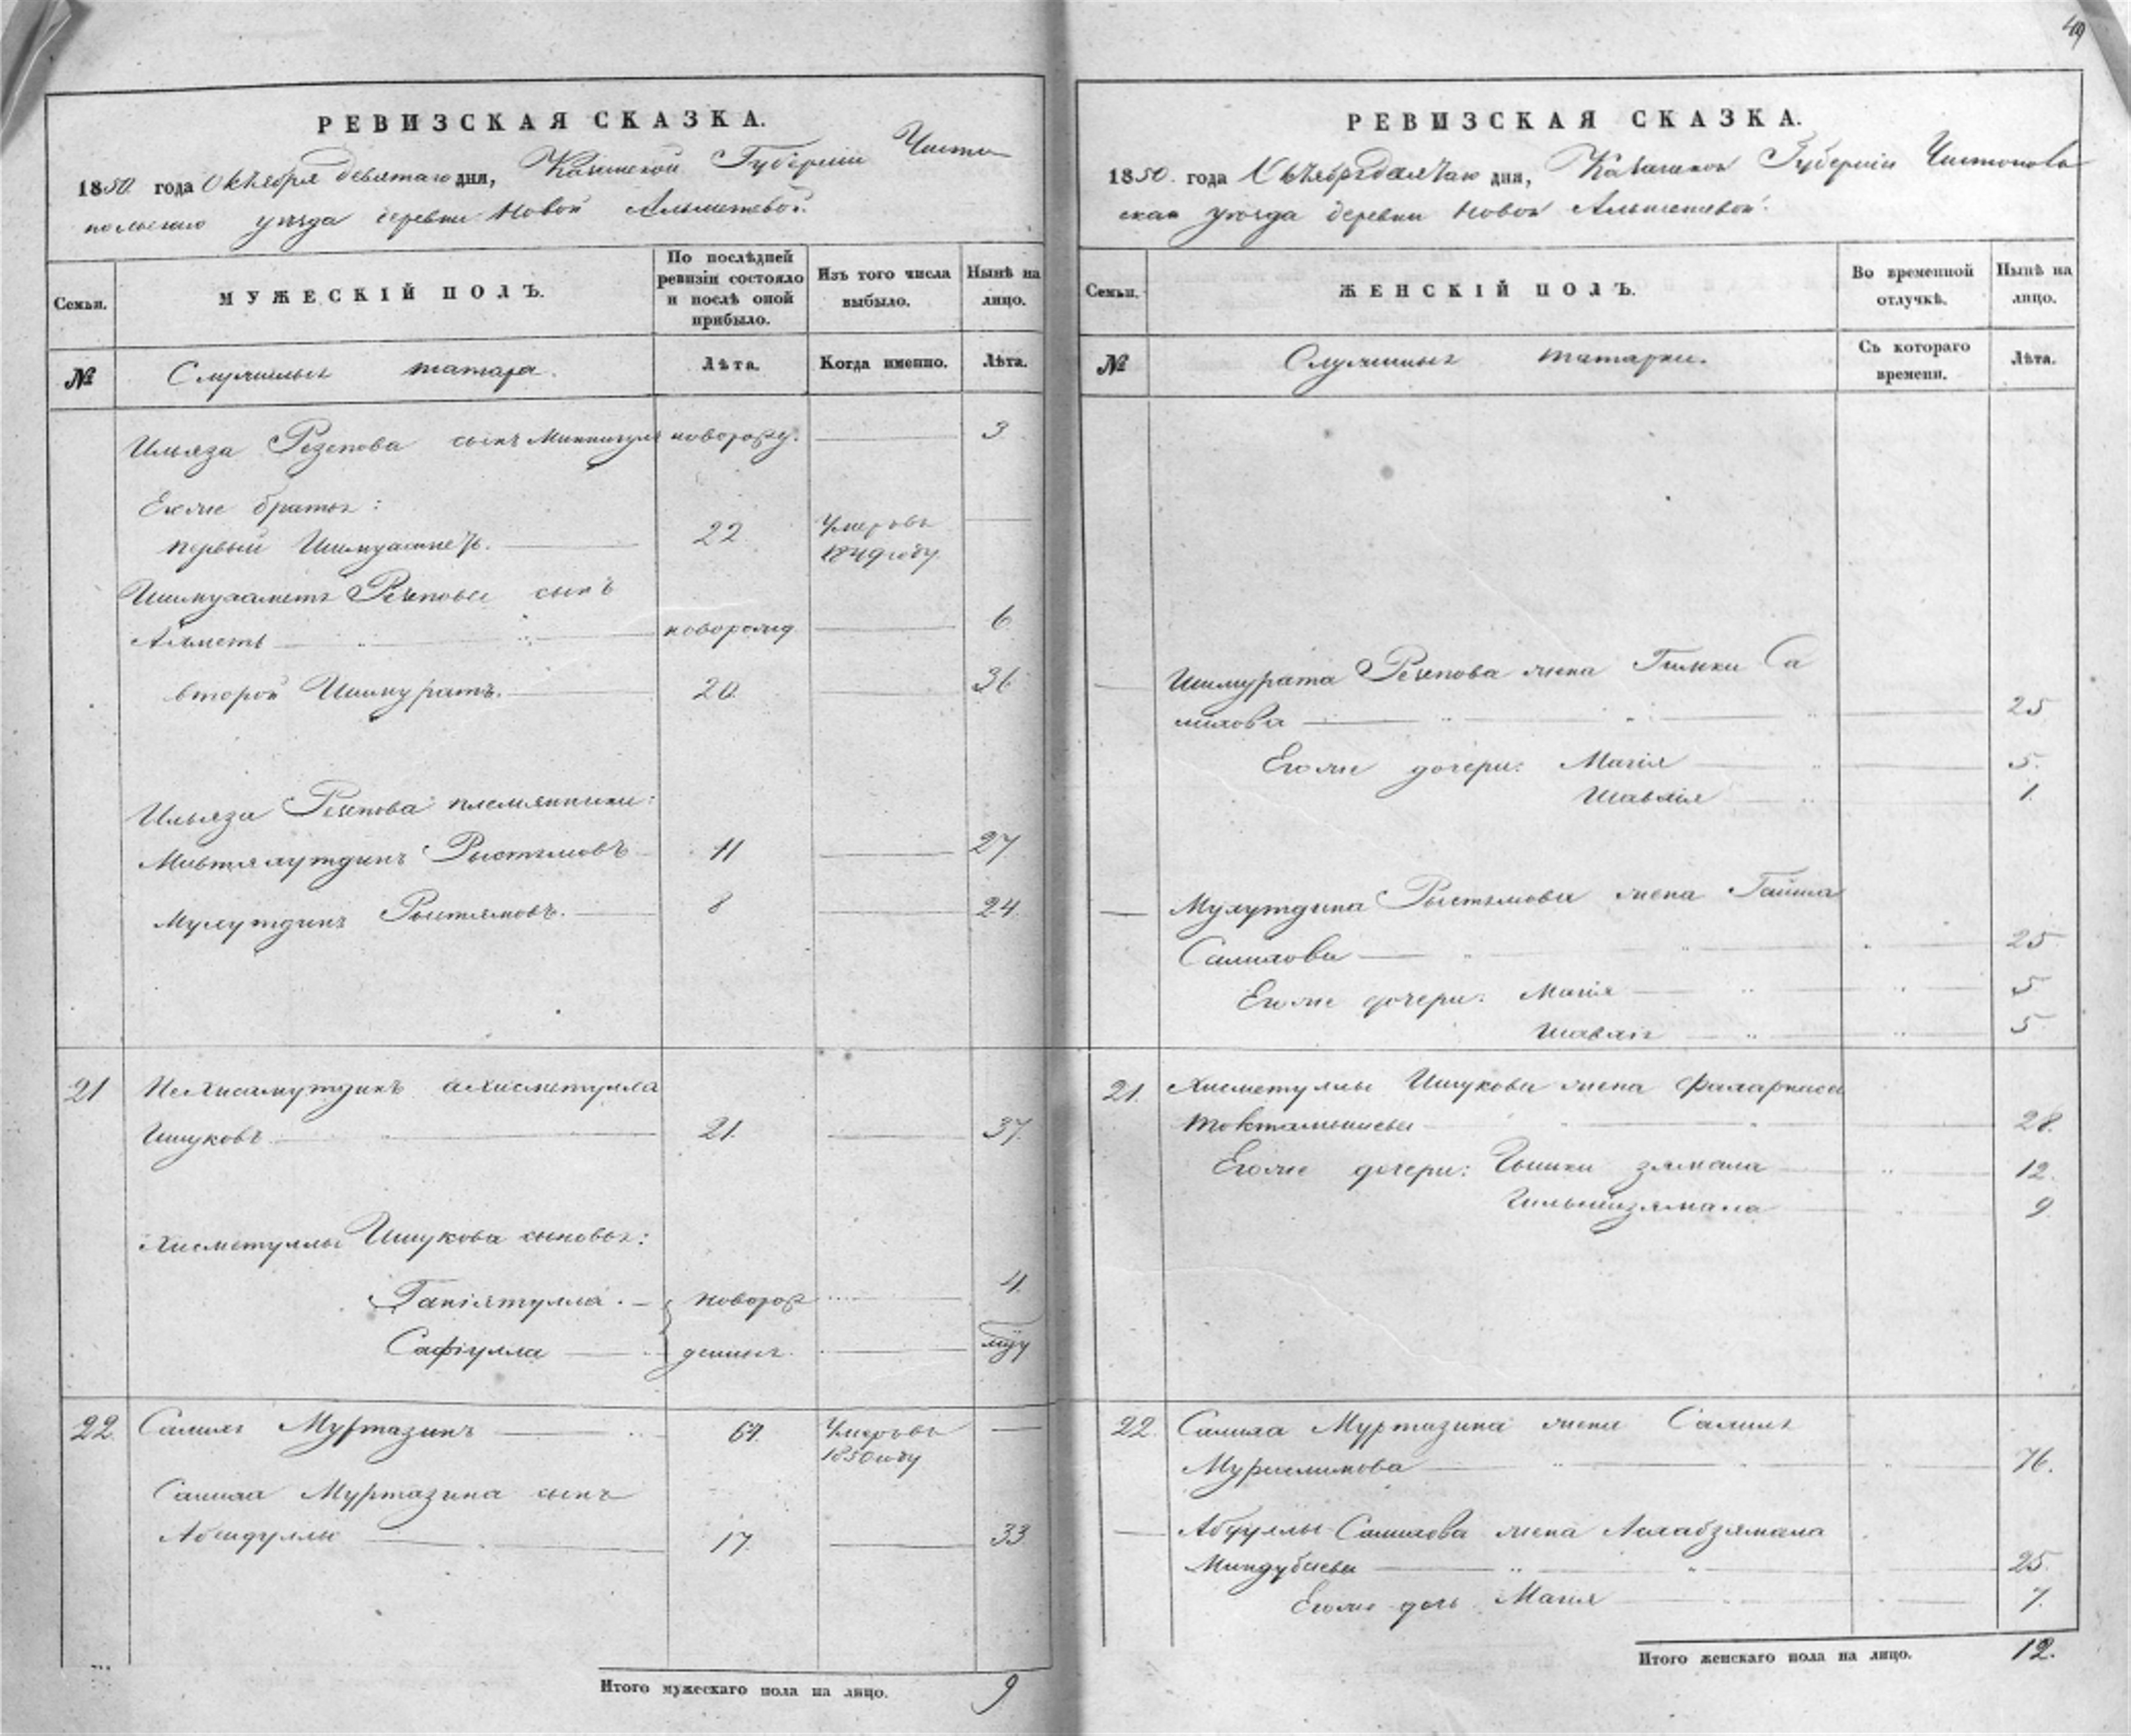 49
РЕВИЗСКАЯ СКАЗКА.
1850 года Октября девятаго дня, Казанской Губерніи Чисто
польскаго уѣзда деревни Новой Альметевой.
Семьи.
МУЖЕСКІЙ ПОЛЪ.
По послѣдней ревизіи состояло и послѣ оной прибыло.
Изъ того числа выбыло.
Нынѣ на лицо.
№
Служилыхъ татаръ.
Лѣта.
Когда именно.
Лѣта.
Ильяза Резепова сынъ новорожд. 3
Егоже братья:
первый Ишмухаметъ. 22 Умеръ въ 1849 году.
Ишмухаметя Резепова сынъ
Ахметъ новорожд. 6
второй Ишмуратъ. 20. 36
Ильяза Резепова племянники:
Мифтяхутдинъ Рыстямовъ 11 27
Мухутдинъ Рыстямовъ. 8 24
21 Нехисамутдинъ ахисметулла
Ишуковъ 21. 37.
Хисметуллы Ишукова сыновья:
Ганіятулла. новорож 4.
Сафіулла денные.
22. Салихъ Муртазинъ 67. Умеръ въ 1850 году
Салиха Муртазина сынъ
Абдулла 17 33
Итого мужескаго пола на лицо. 9
РЕВИЗСКАЯ СКАЗКА.
1850. года Октября девятаго дня, Казанской Губерніи Чистополь
скаго уѣзда деревни Новой Альметевой.
Семьи.
ЖЕНСКІЙ ПОЛЪ.
Во временной отлучкѣ.
Нынѣ на лицо.
№
Служилыхъ татарки.
Съ котораго времени.
Лѣта.
Ишмурата Резепова жена Гильки Са
лихова 25
Егоже дочери: Магія 5.
Шавлія 1.
Мухутдина Рыстямова жена Гайша
Салихова 25.
Егоже дочери: Магія 5
Шавлія 5
21. Хисметуллы Ишукова жена
Токтамышева 28.
Егоже дочери: зямала 12.
9
22. Салиха Муртазина жена Салиха
Муслимова 76.
Абдуллы Салихова жена
Миндубаева 25.
Егоже дочь Магія 7.
Итого женскаго пола на лицо. 12.